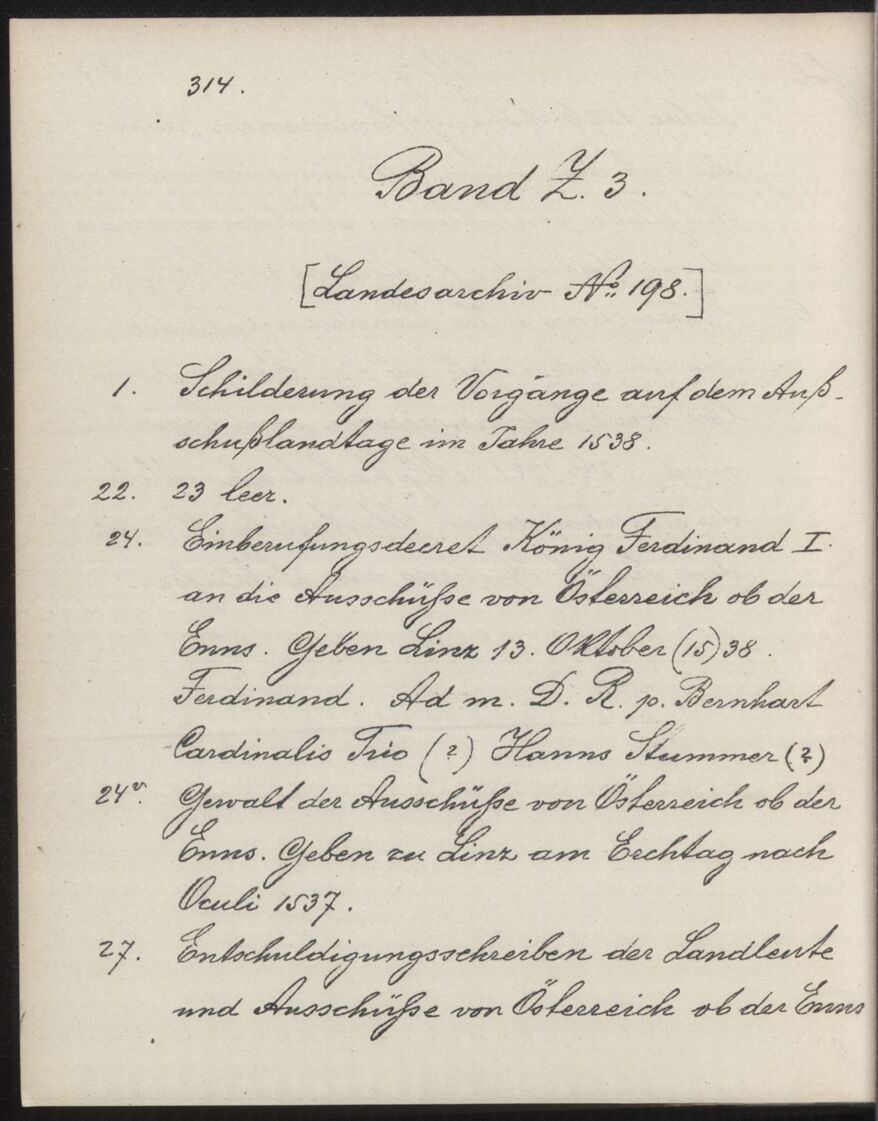 314.
Band Z. 3.
[Landesarchiv No. 198.]
1. Schilderung der Vorgänge auf dem Auß-
schußlandtage im Jahre 1538.
22. 23 leer.
24. Einberufungsdecret König Ferdinand I.
an die Ausschüsse von Österreich ob der
Enns. Geben Linz 13. Oktober (15)38.
Ferdinand. Ad m. D. R. p. Bernhart
Cardinalis Trio (?) Hanns Stummer (?)
24v. Gewalt der Ausschüsse von Österreich ob der
Enns. Geben zu Linz am Erchtag nach
Oculi 1537.
27. Entschuldigungsschreiben der Landleute
und Ausschüsse von Österreich ob der Enns